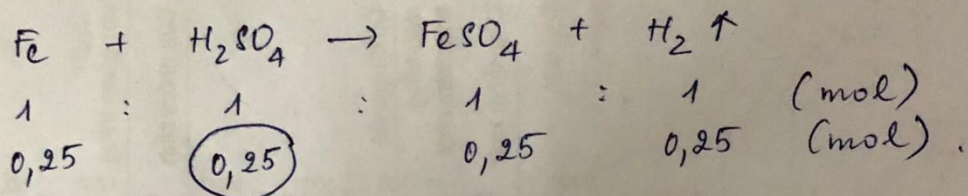 Fe + H₂SO₄ → FeSO₄ + H₂ ↑
1 : 1 : 1 : 1 (mol)
0,25 0,25 0,25 0,25 (mol).